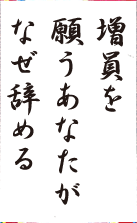 増員を
願うあなたが
なぜ辞める